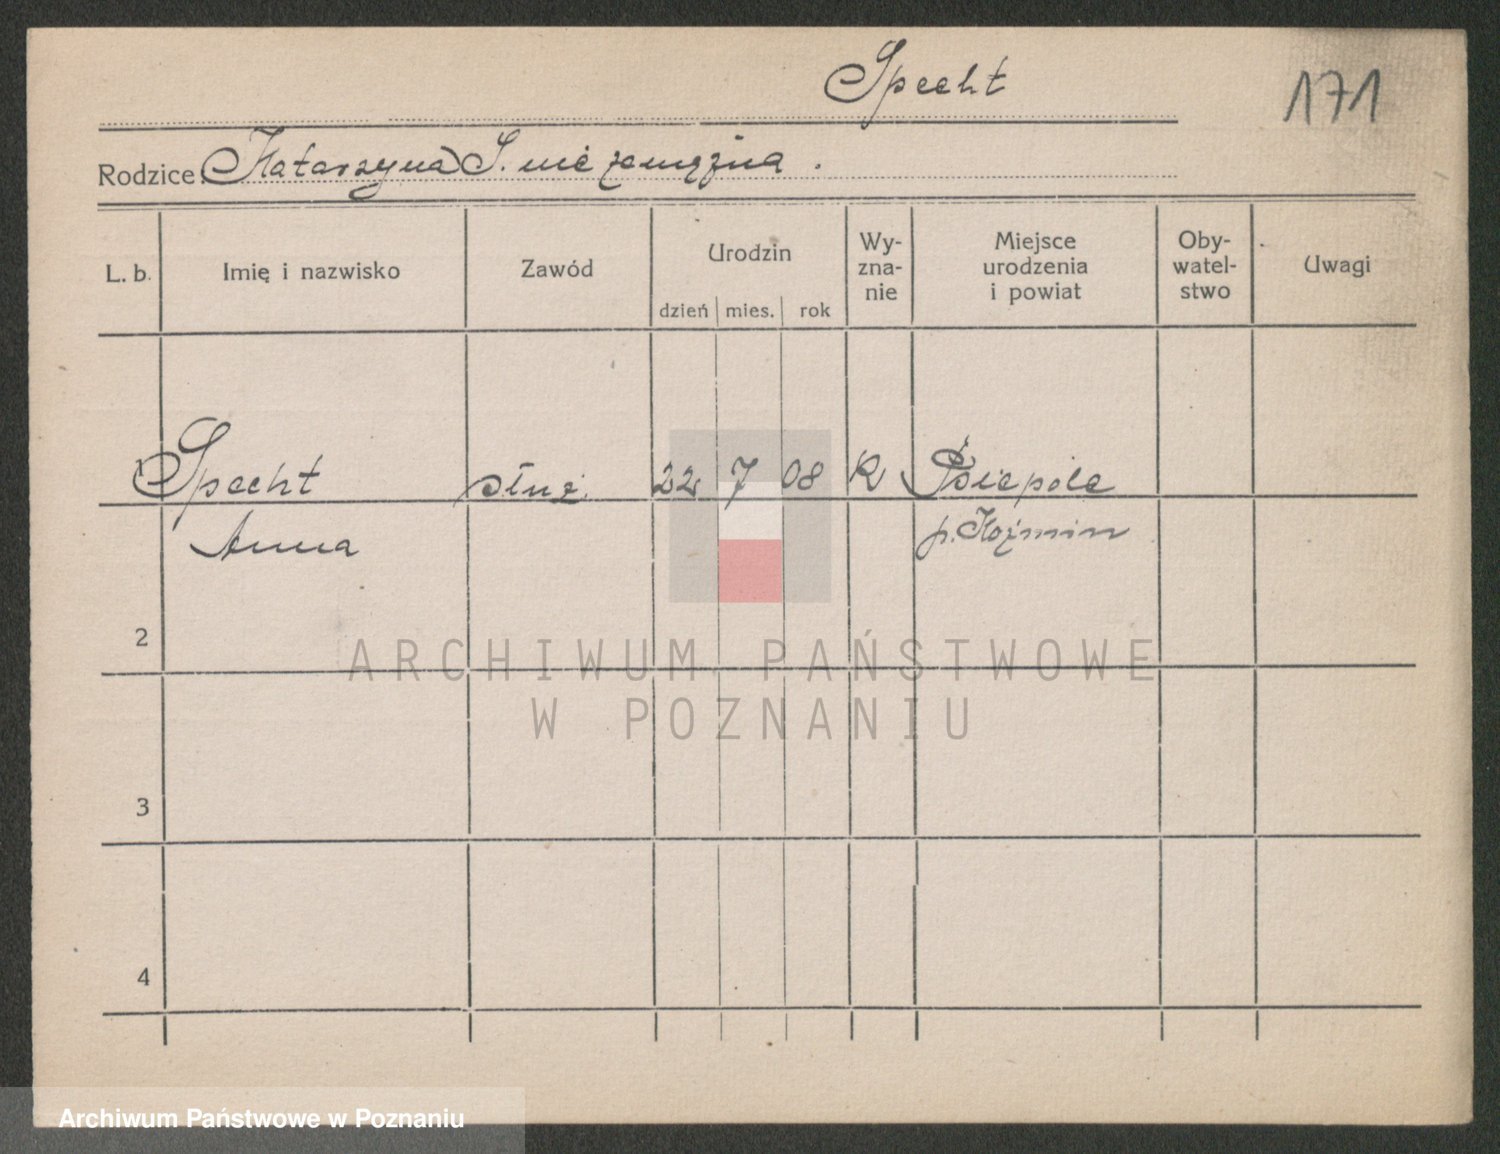 Specht
171
Rodzice: Katarzyna S. nie zamężna.
L. b.
Imię i nazwisko
Zawód
Urodzin
dzień mies. rok
Wy-
zna-
nie
Miejsce
urodzenia
i powiat
Oby-
watel-
stwo
Uwagi
1 Specht służ. 22 7 08 K Psiepole
Anna p. Koźmin
2
3
4
ARCHIWUM PAŃSTWOWE
W POZNANIU
Archiwum Państwowe w Poznaniu